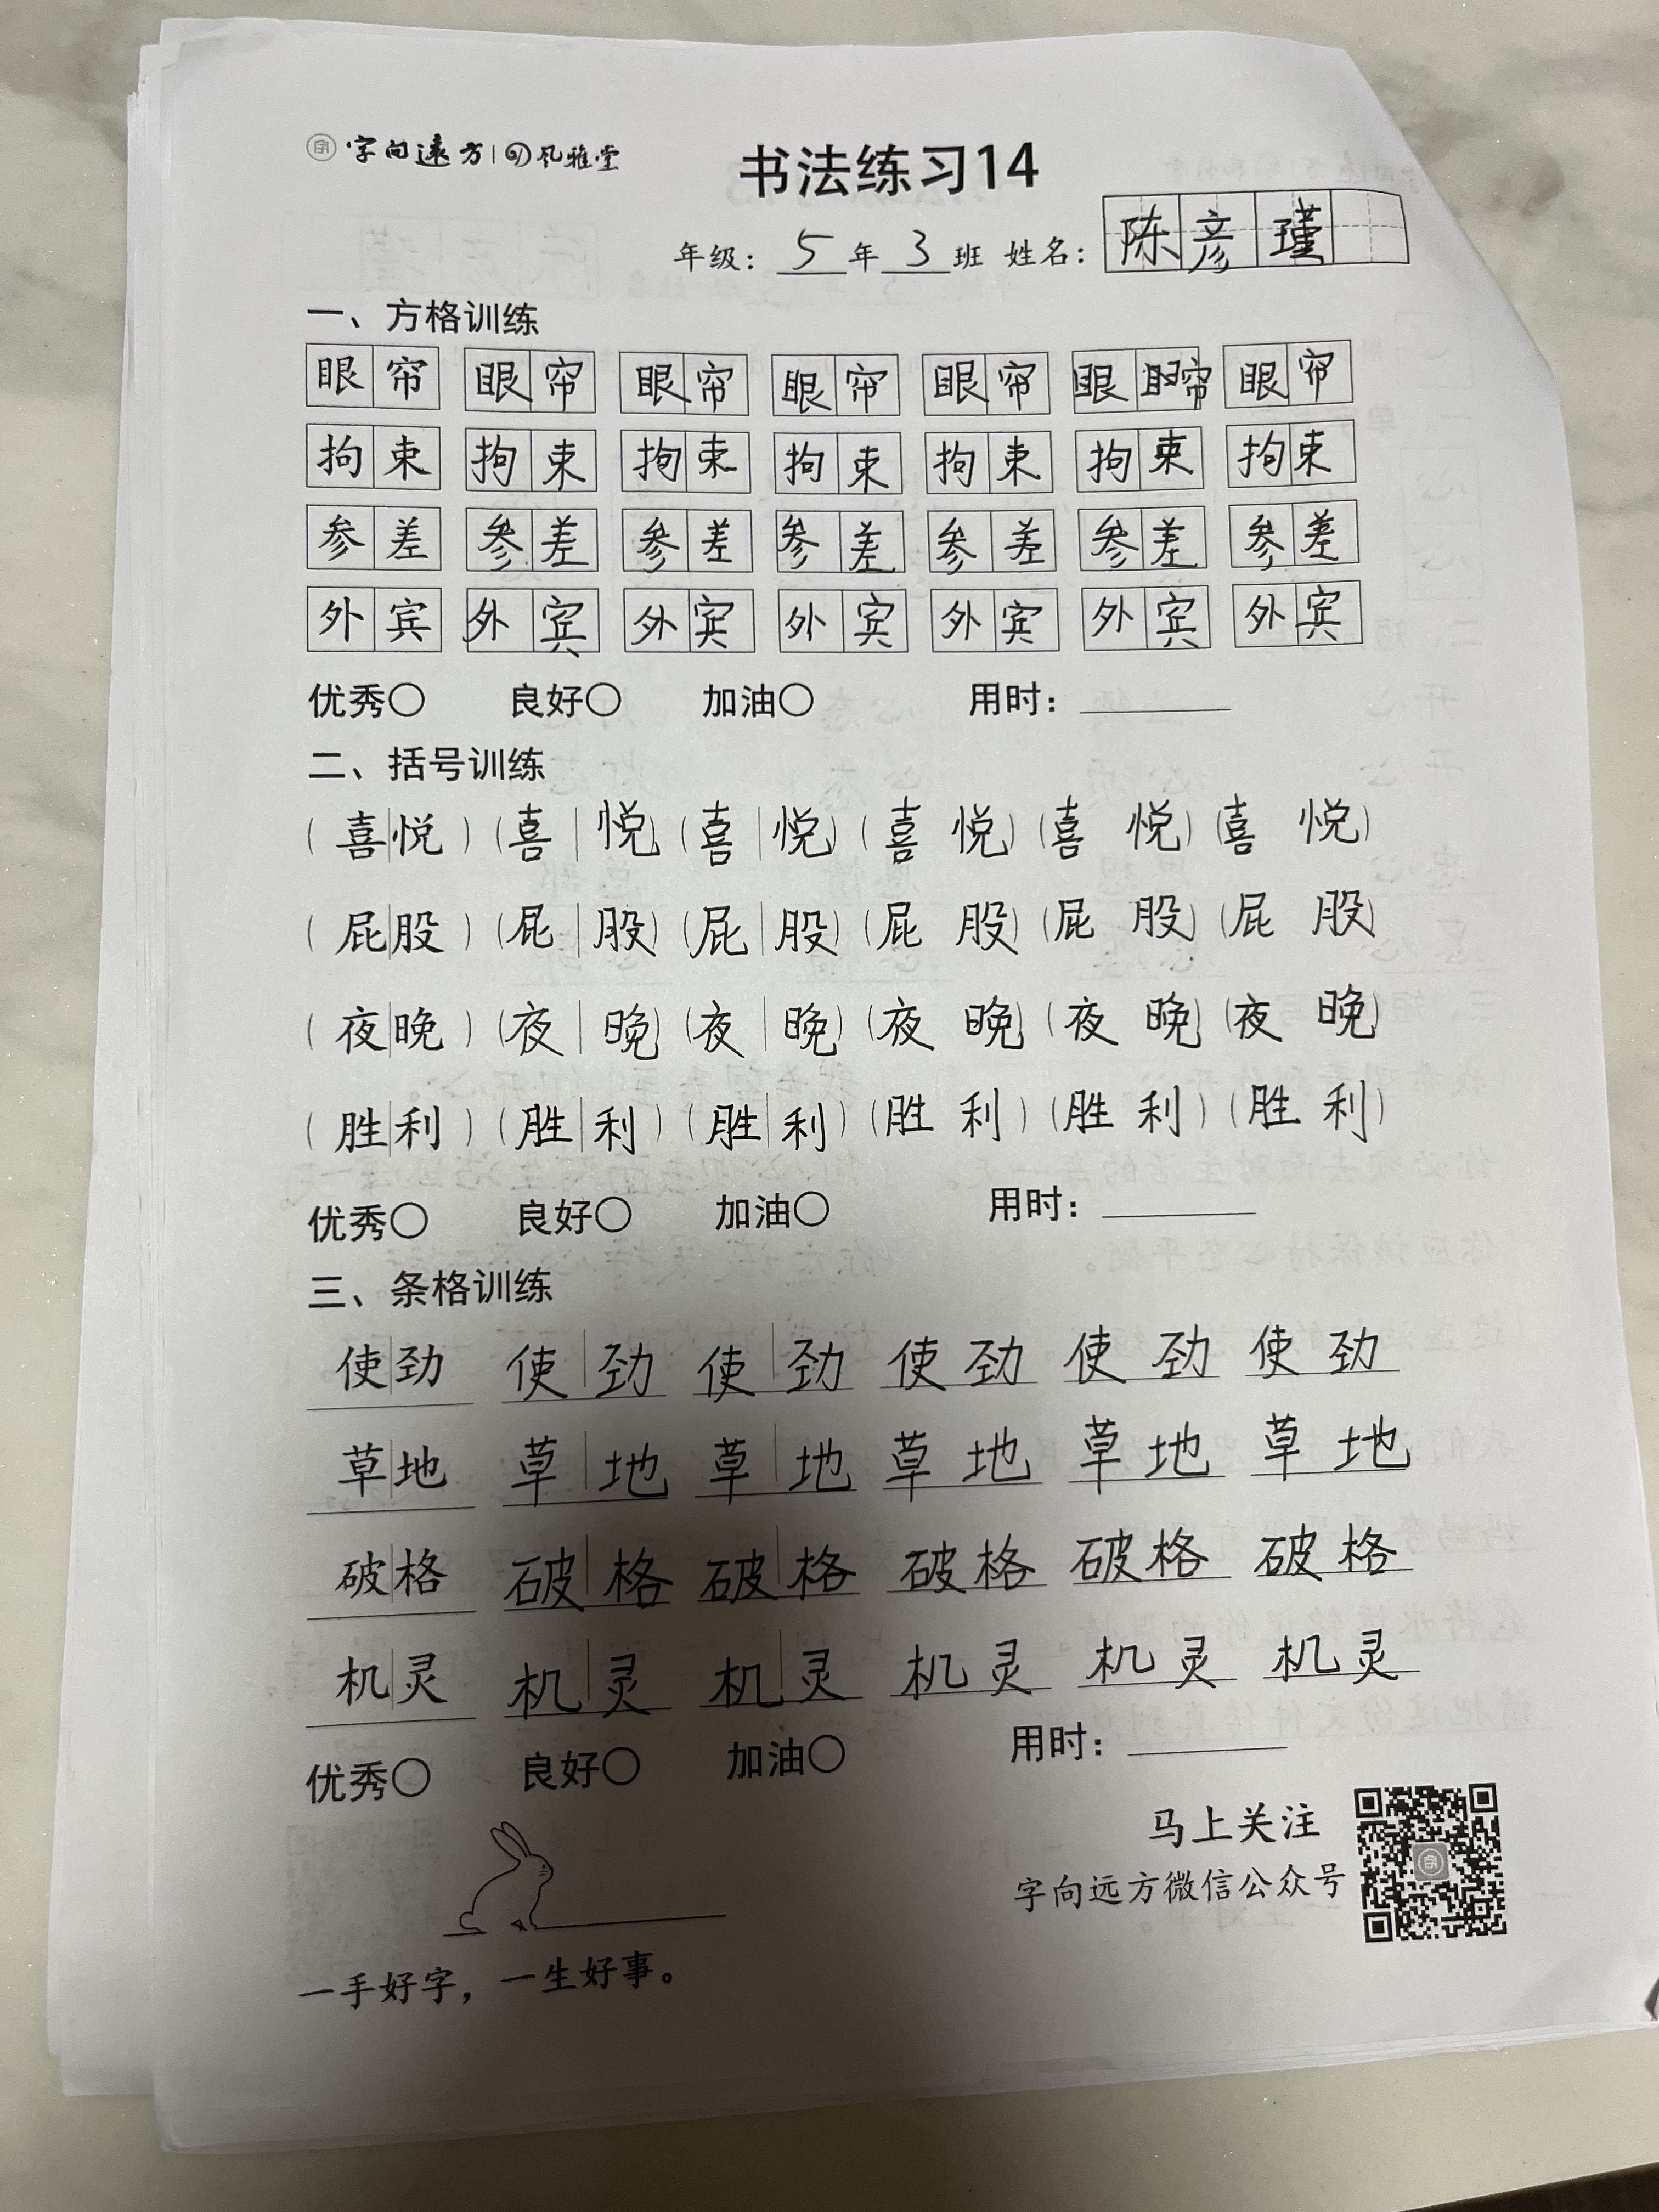 字向远方 风雅堂
书法练习14
年级：5年3班 姓名：陈彦瑾
一、方格训练
眼帘 眼帘 眼帘 眼帘 眼帘 眼 帘 眼帘
拘束 拘束 拘束 拘束 拘束 拘束 拘束
参差 参差 参差 参差 参差 参差 参差
外宾 外宾 外宾 外宾 外宾 外宾 外宾
优秀○ 良好○ 加油○ 用时：
二、括号训练
（喜悦）（喜悦）（喜悦）（喜悦）（喜悦）（喜悦）
（屁股）（屁股）（屁股）（屁股）（屁股）（屁股）
（夜晚）（夜晚）（夜晚）（夜晚）（夜晚）（夜晚）
（胜利）（胜利）（胜利）（胜利）（胜利）（胜利）
优秀○ 良好○ 加油○ 用时：
三、条格训练
使劲 使劲 使劲 使劲 使劲 使劲
草地 草地 草地 草地 草地 草地
破格 破格 破格 破格 破格 破格
机灵 机灵 机灵 机灵 机灵 机灵
优秀○ 良好○ 加油○ 用时：
马上关注
字向远方微信公众号
一手好字，一生好事。